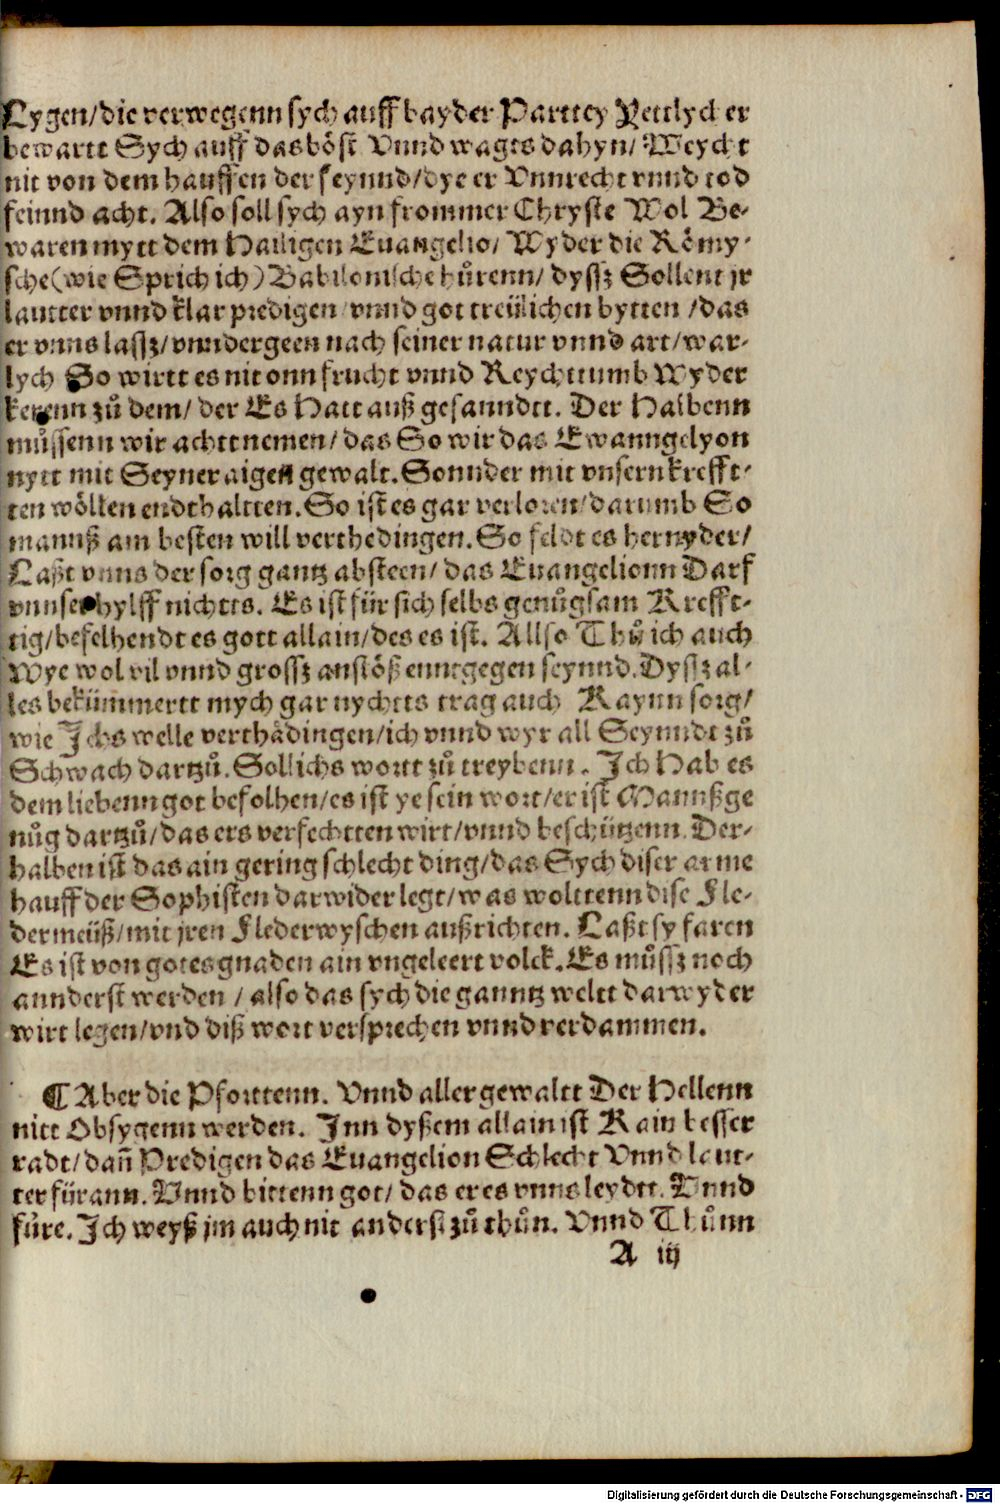 Lygen/die verwegenn sych auff bayder Partey Yettlycker
bewartt Sych auff das böst Vnnd wagts dahyn/ Weycht
nit von dem hauffen der feynnd/dye er Vnnrecht vnnd tod
feinnd acht. Also soll sych ayn frommer Chryste Wol Be-
waren mytt dem Hailigen Euangelio/ Wyder die Römy-
sche(wie Sprich ich) Babilonische hůrenn/ dyssz Sollent jr
lautter vnnd klar predigen vnnd got treülichen bytten /das
er vnns lassz/vnndergeen nach seiner natur vnnd art/war-
lych So wirtt es nit onn frucht vnnd Reychttumb Wyder
kerenn zů dem/ der Es Hatt auß gesanndtt. Der Halbenn
můssenn wir achtt nemen/ das So wir das Ewanngelyon
nytt mit Seyner aigen gewalt. Sonnder mit vnsern krefft-
ten wöllen endthaltten. So ist es gar verloren/darumb So
mannß am besten will verthedingen. So feldt es hernyder/
Laßt vnns der sorg gantz absteen/ das Euangelionn Darf
vnnser hylff nichtts. Es ist für sich selbs genůgsam Krefft-
tig/befelhendt es gott allain/des es ist. Allso Thů ich auch
Wye wol vil vnnd grossz anstöß enntgegen seynnd. Dyssz al-
les bekümmertt mych gar nychtts trag auch Kaynn sorg/
wie Ichs welle verthädingen/ich vnnd wyr all Seynndt zů
Schwach dartzů. Sollichs wortt zů treybenn. Ich Hab es
dem liebenn got befolhen/es ist ye sein wort/er ist Mannßge
nůg dartzů/das ers verfechtten wirt/vnnd beschützenn. Der-
halben ist das ain gering schlecht ding/das Sych diser arme
hauff der Sophisten darwider legt/was wolttenn dise Fle-
dermeüß/mit jren Flederwyschen außrichten. Laßt sy faren
Es ist von gotes gnaden ain vngeleert volck. Es můssz noch
annderst werden / also das sych die ganntz weltt darwyder
wirt legen/vnd diß wort versprechen vnnd verdammen.
¶ Aber die Pforttenn. Vnnd aller gewaltt Der Hellenn
nitt Obsygenn werden. Inn dyßem allain ist Kain besser
radt/dañ Predigen das Euangelion Schlecht Vnnd laut-
ter fürann. Vnnd bittenn got/ das er es vnns leydtt. Vnnd
fůre. Ich weyß jm auch nit anderst zů thůn. Vnnd Thůnn
A iij
4.
Digitalisierung gefördert durch die Deutsche Forschungsgemeinschaft - DFG